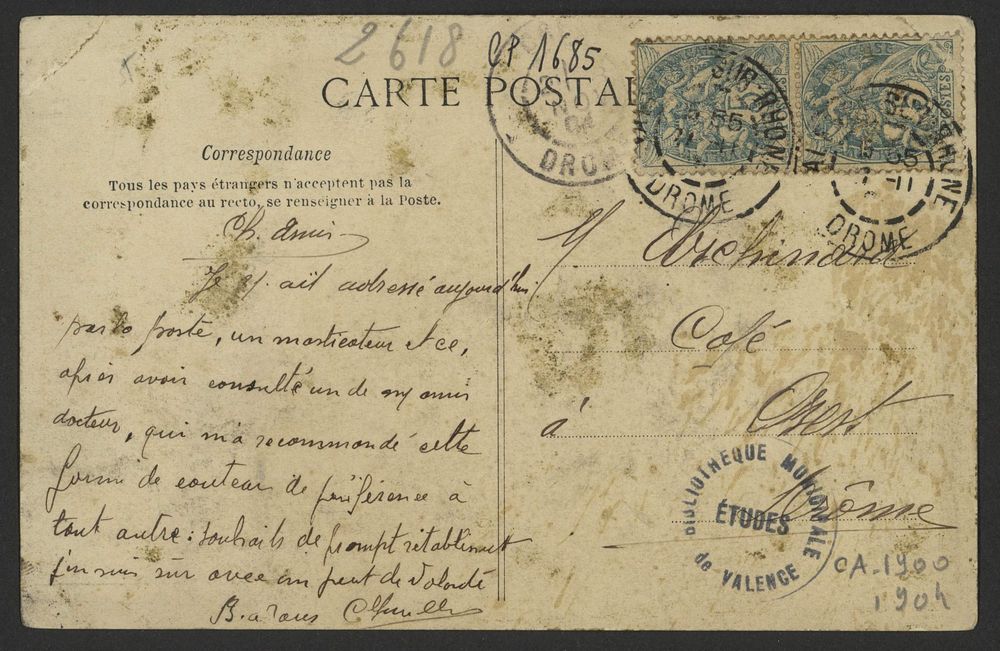 2618
CP 1685
CARTE POSTAL
DROM
SUR-RHONE
DROME
POSTES
DROME
Correspondance
Tous les pays étrangers n'acceptent pas la
correspondance au recto, se renseigner à la Poste.
Ch. Amis
Je ai adressé aujourd'hui
par la poste, un masticateur et ce,
après avoir consulté un de amis
docteur, qui m'a recommandé cette
forme de couteau de préférence à
tout autre: souhaits de prompt rétablissement
j'en suis sûr avec un peu de volonté
B. à vous
M Archinard
Café
à Crest
Drôme
BIBLIOTHEQUE MUNICIPALE
ÉTUDES
de VALENCE
CA.1900
1904